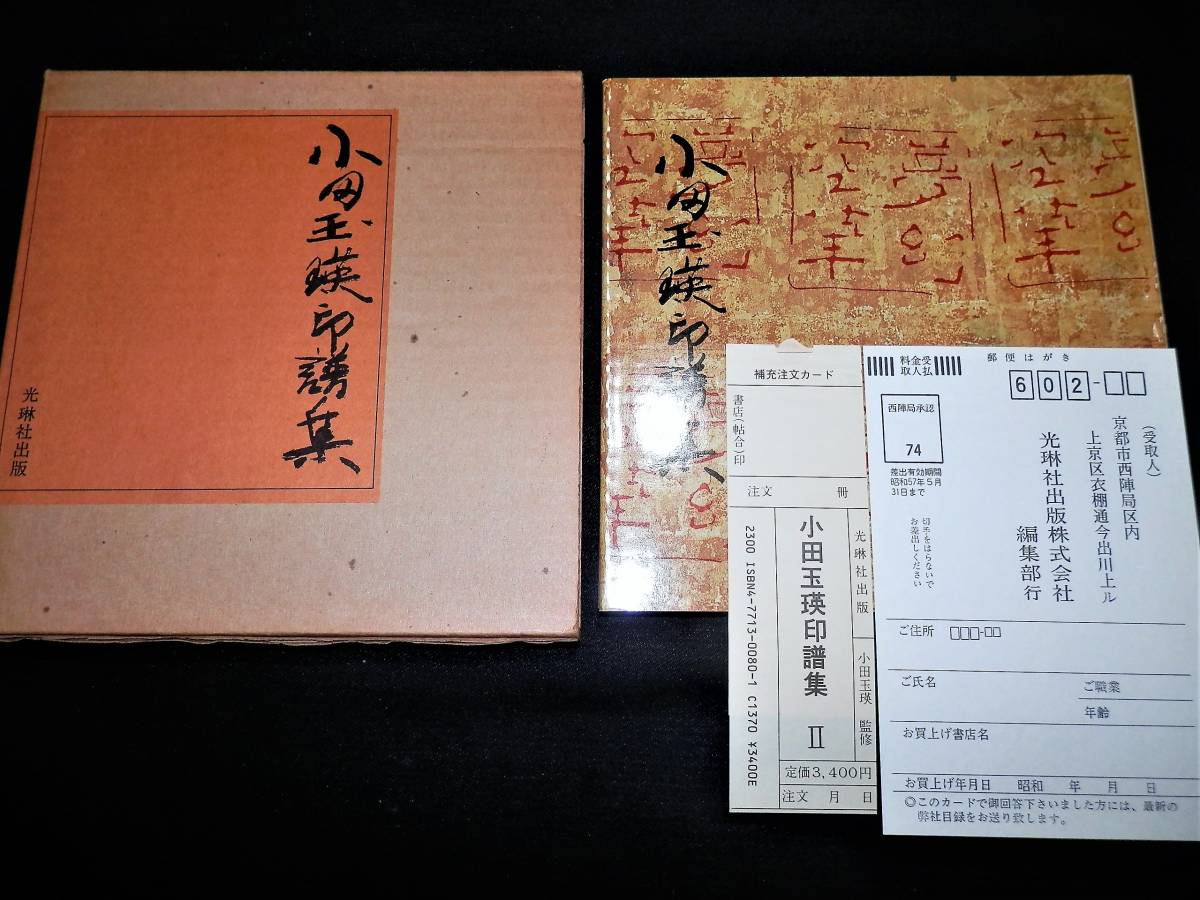 小田玉瑛印譜集
光琳社出版
小田玉瑛印譜集
補充注文カード
書店(帖合)印
注文 冊
光琳社出版
小田玉瑛 監修
小田玉瑛印譜集 II
2300 ISBN4-7713-0080-1 C1370 ¥3400E
定価3,400円
注文 月 日
料金受
取人払
郵便はがき
602-□□
西陣局承認
74
差出有効期間
昭和57年5月
31日まで
切手をはらないで
お差出しください
(受取人)
京都市西陣局区内
上京区衣棚通今出川上ル
光琳社出版株式会社
編集部 行
ご住所 □□□-□□
ご氏名
ご職業
年齢
お買上げ書店名
お買上げ年月日 昭和 年 月 日
◎このカードで御回答下さいました方には、最新の
弊社目録をお送り致します。